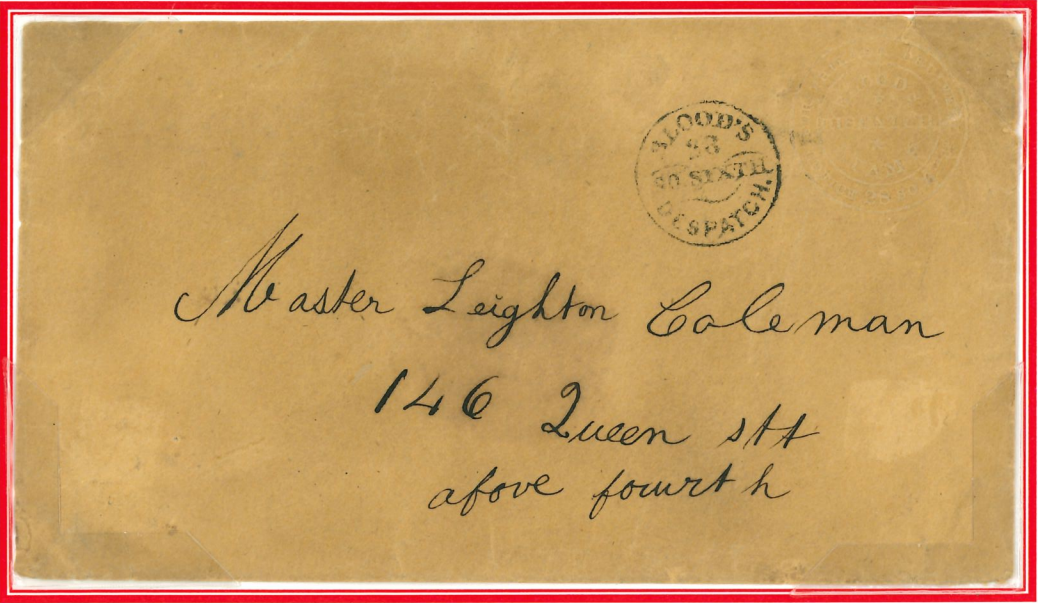 BLOOD'S
28
SO. SIXTH
DESPATCH.
Master Leighton Coleman
146 Queen stt
above fourth